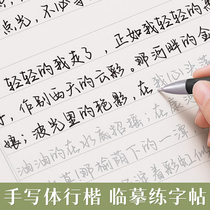 轻轻的我走了，正如我轻轻的
作别西天的云彩。那河畔的金
娘；波光里的艳影，在
油油的在水底招摇；在
那榆荫下的一潭
手写体行楷 临摹练字帖